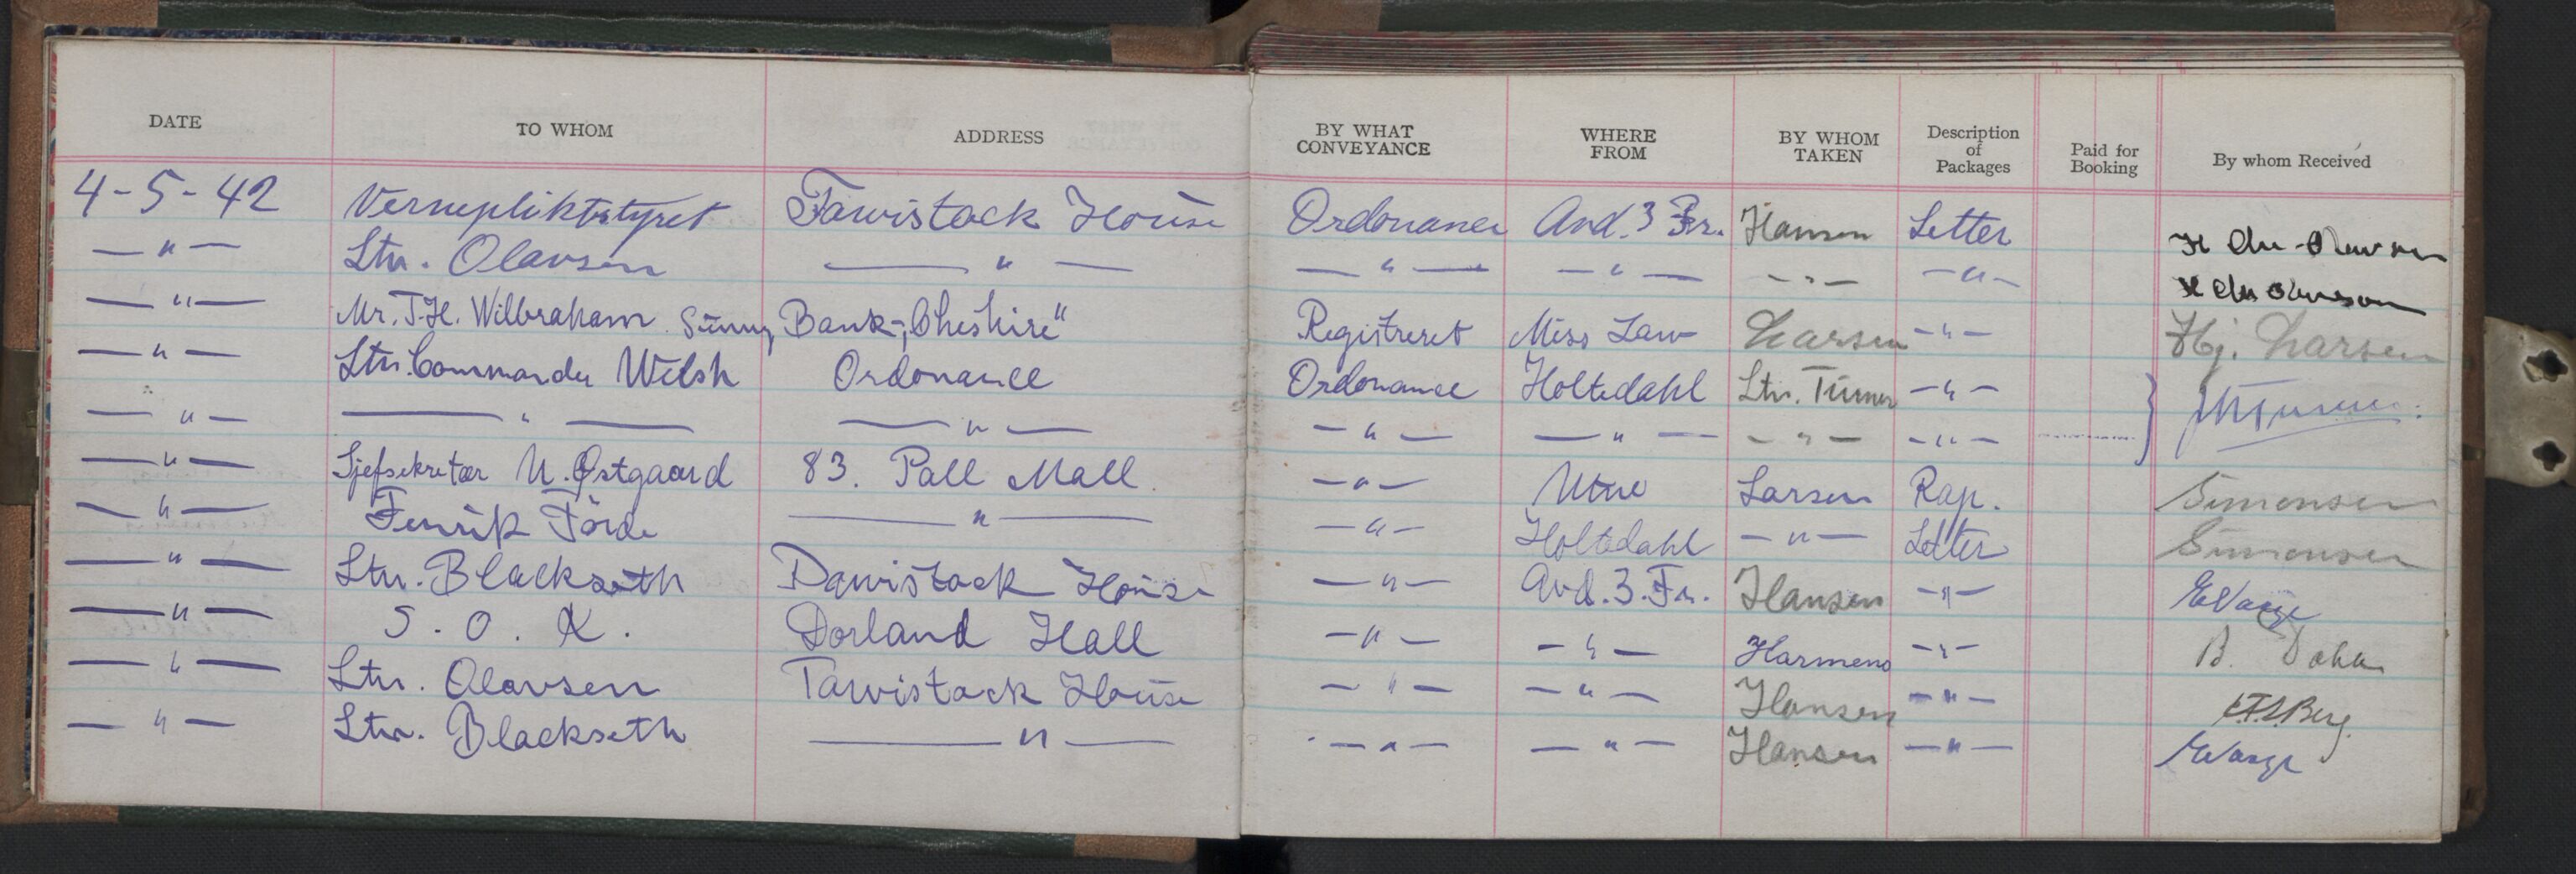 DATE TO WHOM ADDRESS BY WHAT CONVEYANCE WHERE FROM BY WHOM TAKEN Description of Packages Paid for Booking By whom Received
4-5-42 Vernepliktstyret Tawistock House Ordonance Avd. 3 Fr. Hansen Letter
— " — Ltn. Olavsen — " — — " — — " — — " — — " —
— " — Mr. T.H. Wilbraham Sunny Bank, Cheshire" Registreret Miss Law Larsen — " — Hj. Larsen
— " — Ltn. Commander Welsh Ordonance Ordonance Holtedahl Ltn. Turner — " —
— " — — " — — " — — " — — " — — " — — " —
— " — Sjefsekretær N. Østgaard 83. Pall Mall. — " — Utne Larsen Rap. Simonsen
— " — Fenrik Förde — " — — " — Holtedahl — " — Letter Simonsen
— " — Ltn. Blackseth Dawistock House — " — Avd. 3. Fr. Hansen — " —
— " — S. O. K. Dorland Hall — " — — " — Harmens — " — B. Dahl
— " — Ltn. Olavsen Tawistock House — " — — " — Hansen — " — Berg.
— " — Ltn. Blackseth — " — — " — — " — Hansen — " —